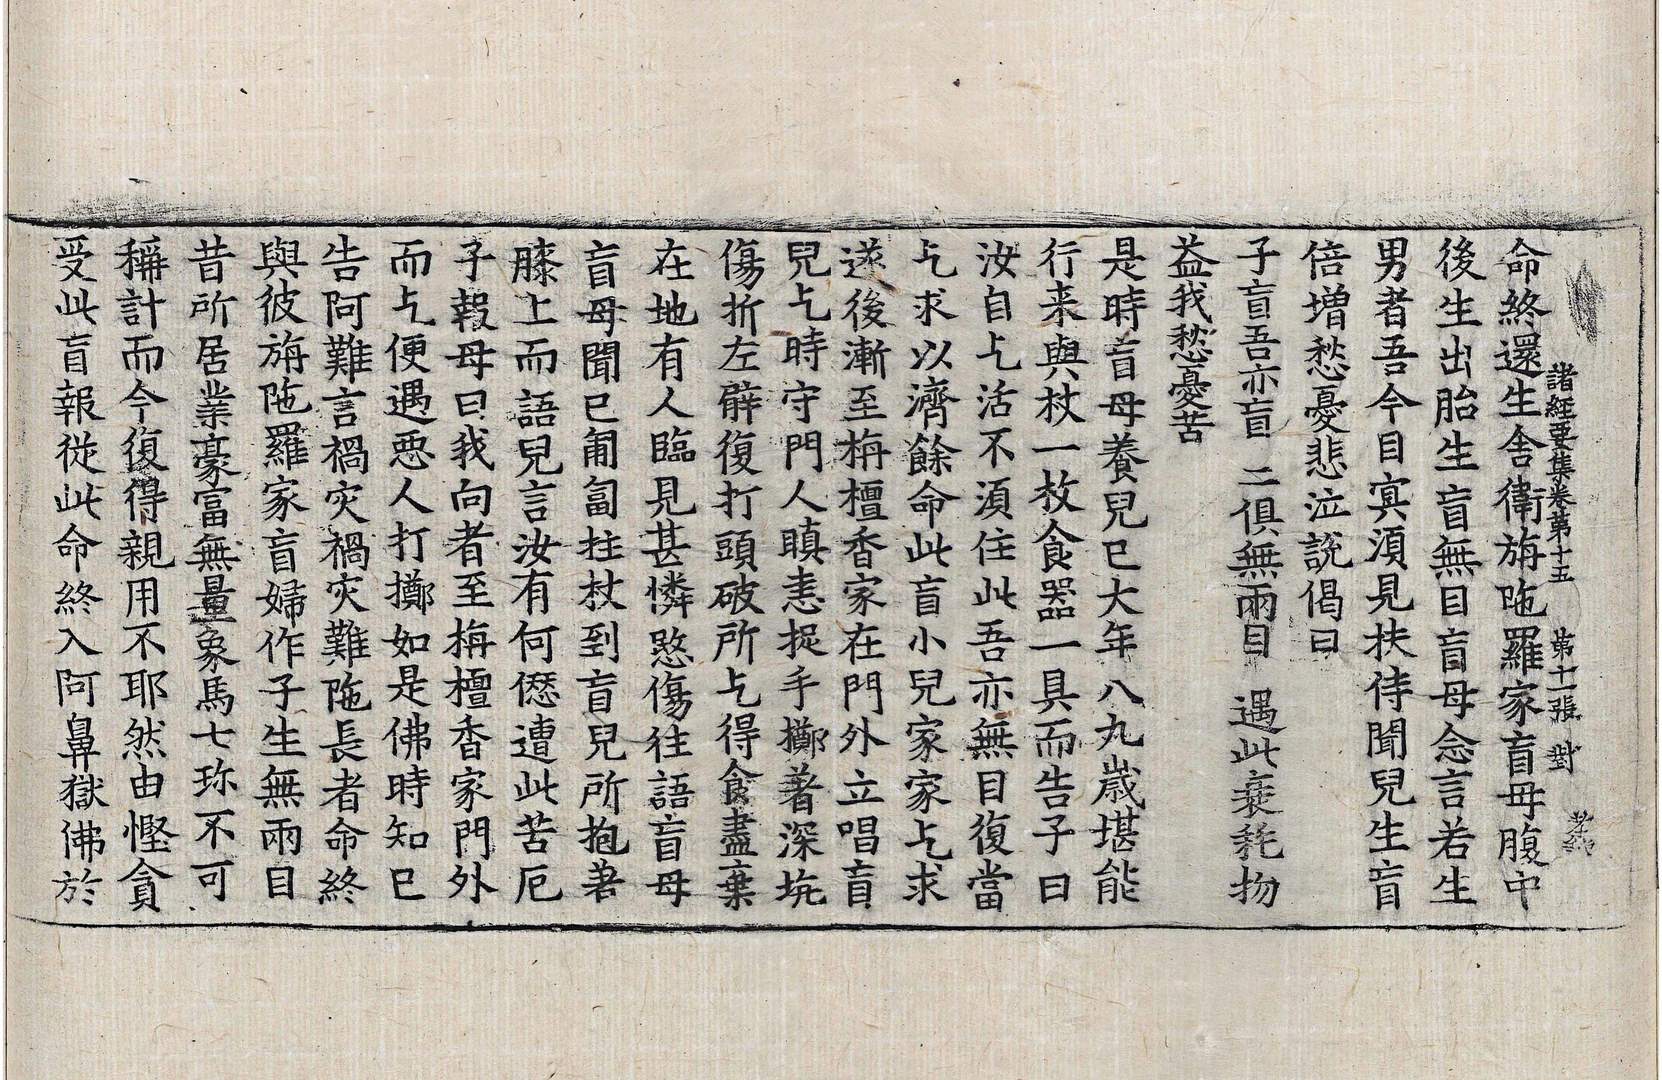 諸經要集卷第十五 第十一張 對
命終還生舍衛旃陁羅家盲母腹中
後生出胎生盲無目盲母念言若生
男者吾今目冥湏見扶侍聞兒生盲
倍增愁憂悲泣說偈曰
子盲吾亦盲 二俱無兩目 遇此衰耗物
益我愁憂苦
是時盲母養兒已大年八九歲堪能
行来與杖一枚食器一具而告子曰
汝自乞活不湏住此吾亦無目復當
乞求以濟餘命此盲小兒家家乞求
遂後漸至栴檀香家在門外立唱盲
兒乞時守門人瞋恚捉手擲著深坑
傷折左臂復打頭破所乞得食盡棄
在地有人臨見甚憐愍傷往語盲母
盲母聞已匍匐拄杖到盲兒所抱著
膝上而語兒言汝有何僽遭此苦厄
子報母曰我向者至栴檀香家門外
而乞便遇惡人打擲如是佛時知已
告阿難言禍灾禍灾難陁長者命終
與彼旃陁羅家盲婦作子生無兩目
昔所居業豪富無量象馬七珎不可
稱計而今復得親用不耶然由慳貪
受此盲報從此命終入阿鼻獄佛於